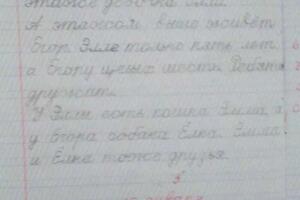 этаже девочка Элли.
А этажом выше живёт
Егор. Элле только пять лет,
а Егору целых шесть. Ребята
дружат.
У Элли есть кошка Эмма, а
у Егора собака Ёлка. Эмма
и Ёлка тоже друзья.
5